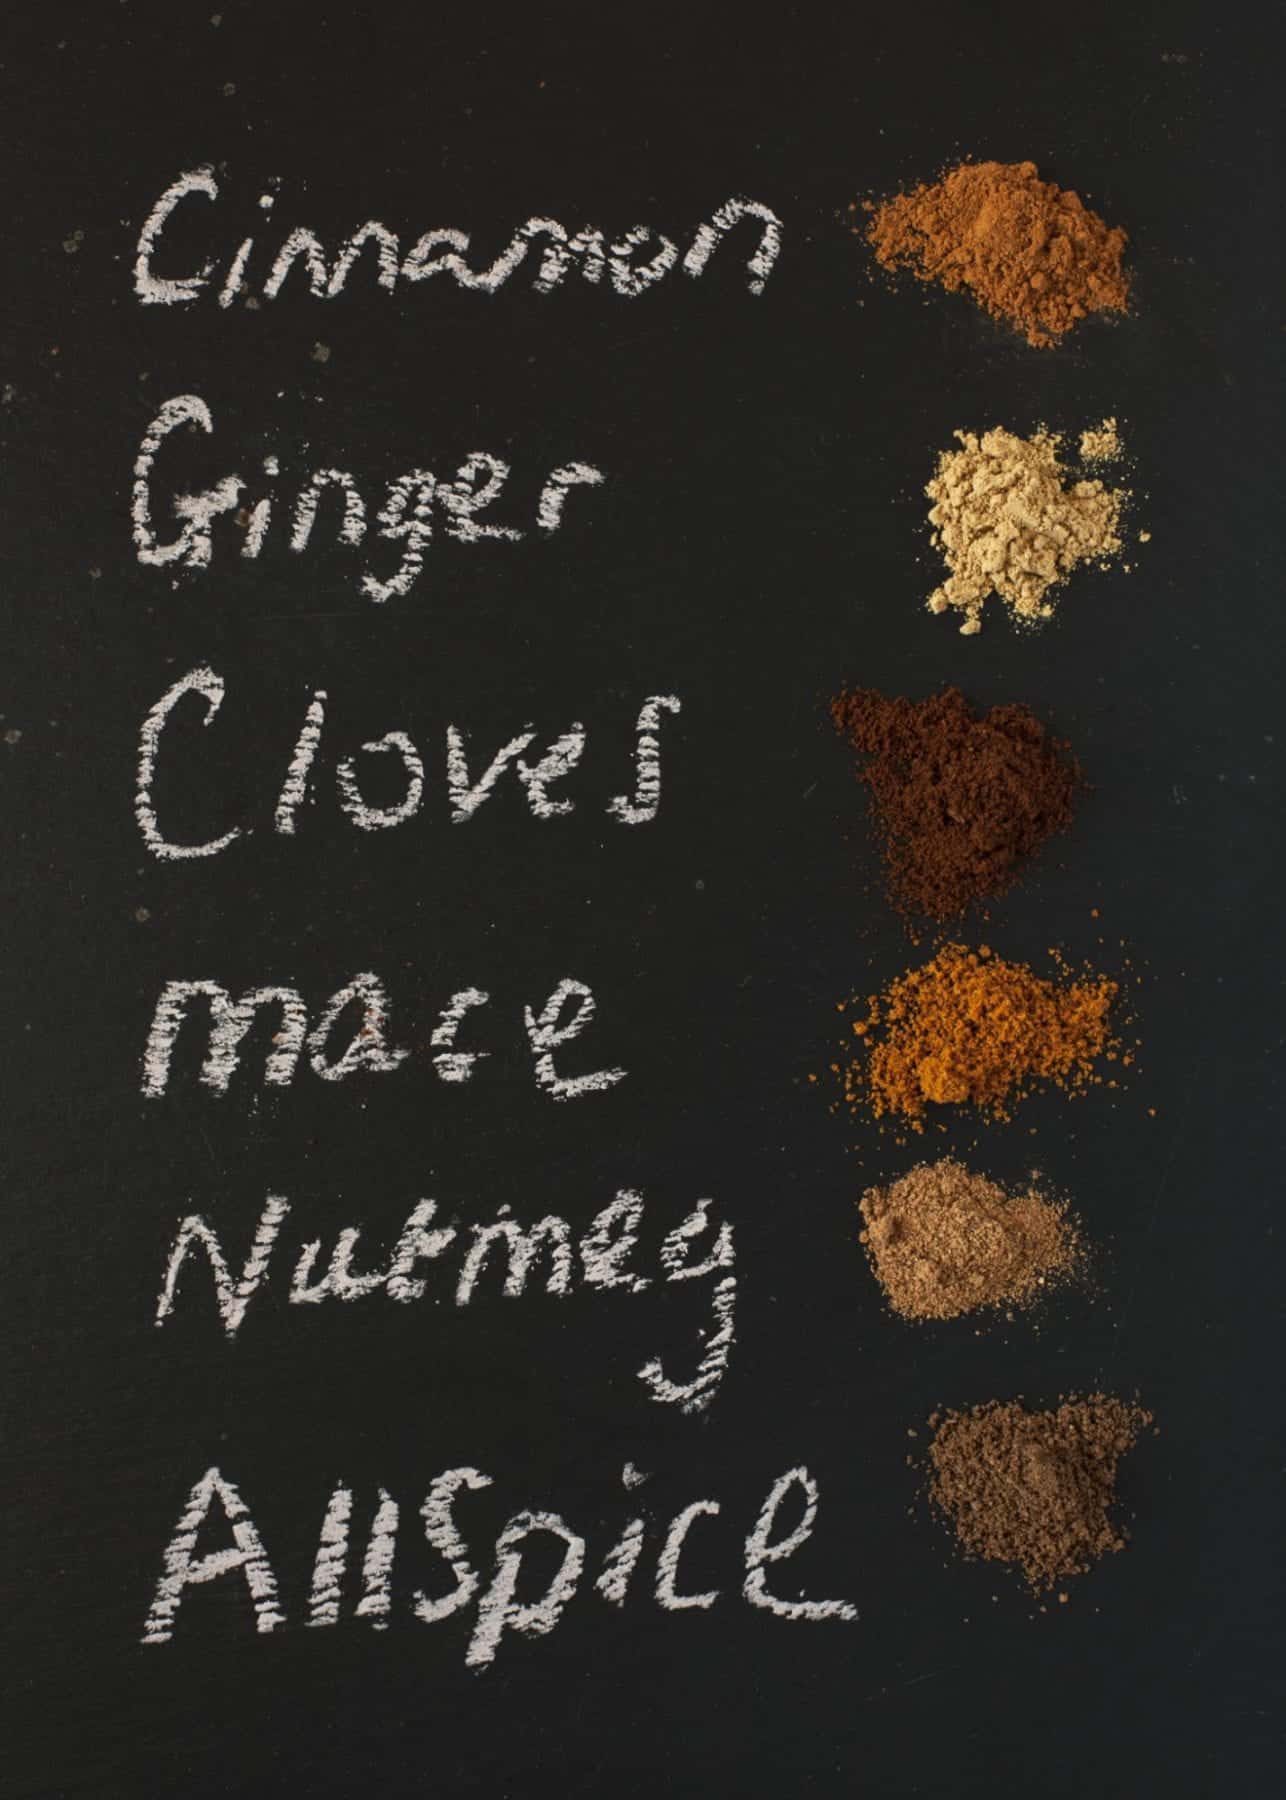 Cinnamon
Ginger
Cloves
mace
Nutmeg
AllSpice